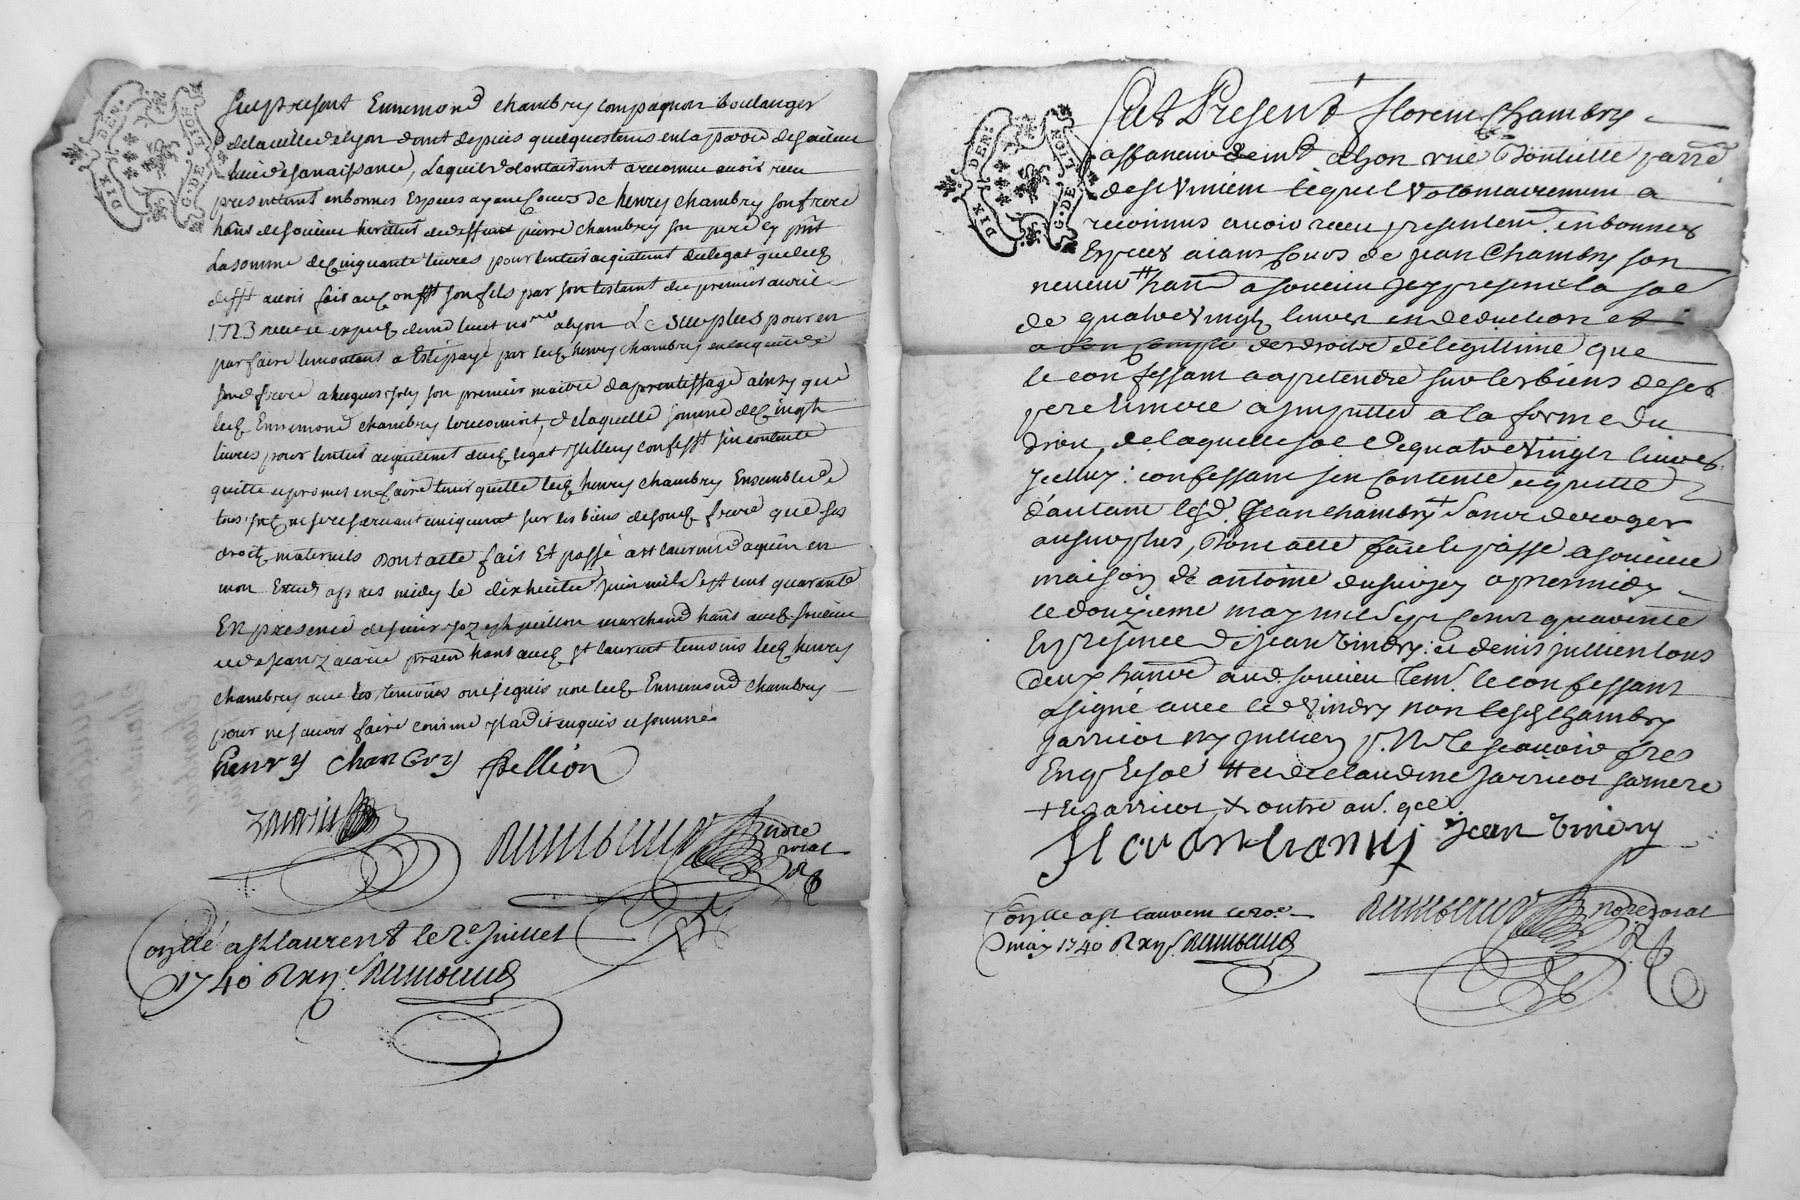 DIX DEN.
G. DE LION
fut present Ennemond chambry compagnon boulanger
de la ville de lyon dont depuis quelques tems en la parre de soucieu
lieu de sa naissance, Lequel volontairement a reconnu avoir receu
presentemt en bonnes Especes ayant Cours de henry chambry son frere
hant de soucieu heretier de deffunt pierre chambry son pere cy pnt
La somme de Cinquante livres pour lentier aquittemt du legat que led
defft avoit fait aud confft son fils par son testamt du premier avril
1723 receu et expedié
a lyon Le surplus pour en
parfaire le montant a Esté payé par led henry chambry en lacquit de
sond frere a Jacques Joly son premier maitre dapprentissage ainsy que
led Ennemond chambry le reconnoit, de laquelle somme de Cinqte
livres pour lentier aquittemt dud legat Jcelluy confesst sen contente
quitte et promet en faire tenir quitte led henry chambry Ensemble de
tous ne se reservant uniquemt sur les biens de soud frere que ses
droits maternels Dont acte fait Et passé a st laurent dagny en
mon Etude apres midy le dixhuitie Juin mil Sept cent quarante
En presence de sieur Jozeph peillon marchand hant aud Soucieu
et de Jean Zacarie hant aud st laurent temoins led henry
chambry avec les temoins ont signé non led Ennemond chambry
pour ne scavoir faire comme Jl a dit enquis et sommé
henry chanbry pellion
Zacarie
notre
roial
Conllé a st laurent le 2e Juillet
1740 R xij s
DIX DEN.
G. DE LION
Fut Present florent Chambry
affaneur demt a lyon rue Bouteille parre
de st vincent lequel volontairement a
reconnus avoir receu presentemt. en bonnes
Especes aiant Cours de Jean Chambry son
neveu # hant a soucieu Jcy present la soe
de quatre vingt livres en deduction et
a bon compte des droits de legittime que
le confessant a a pretendre sur les biens de ses
pere & mere a imputter a la forme du
droit, de laquelle soe de quatre vingts livres
Jcelluy confessant sen Contente et quitte
dautant led. Jean chambry + sans deroger
au surplus, Dont acte fait & passé a soucieu
maison de antoine dupuizey apres midy
le douzieme may mil sept Cent quarente
En presence de jean Vindry et denis jullien tous
deux hants aud. soucieu tem. le confessant
a signé avec led Vindry non lesd chambry
jarricot ny jullien p. N. le scavoir fres
Enq & soe # et de claudine jarricot sa mere
+ & jarricot x outre au. qce
florantchanbrij jean Vindry
Conllé a st laurent le 20e
may 1740 R xij s
notre roial